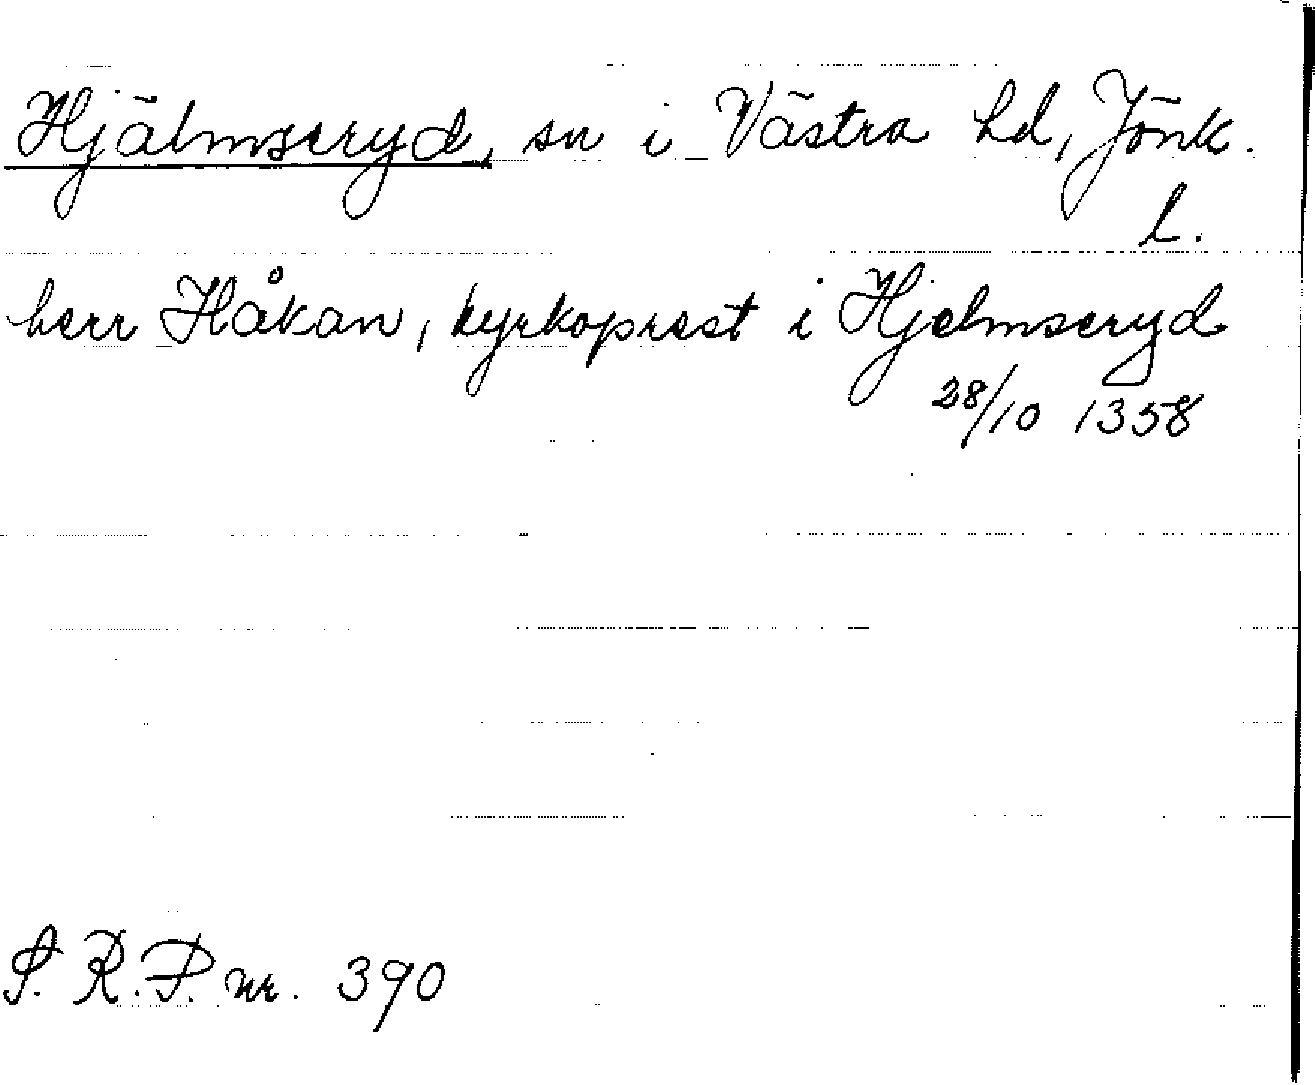 Hjälmseryd, sn i Västra hd, Jönk.
l.
herr Håkan, kyrkoprest i Hjelmseryd
28/10 1358
S. R. P. nr. 390